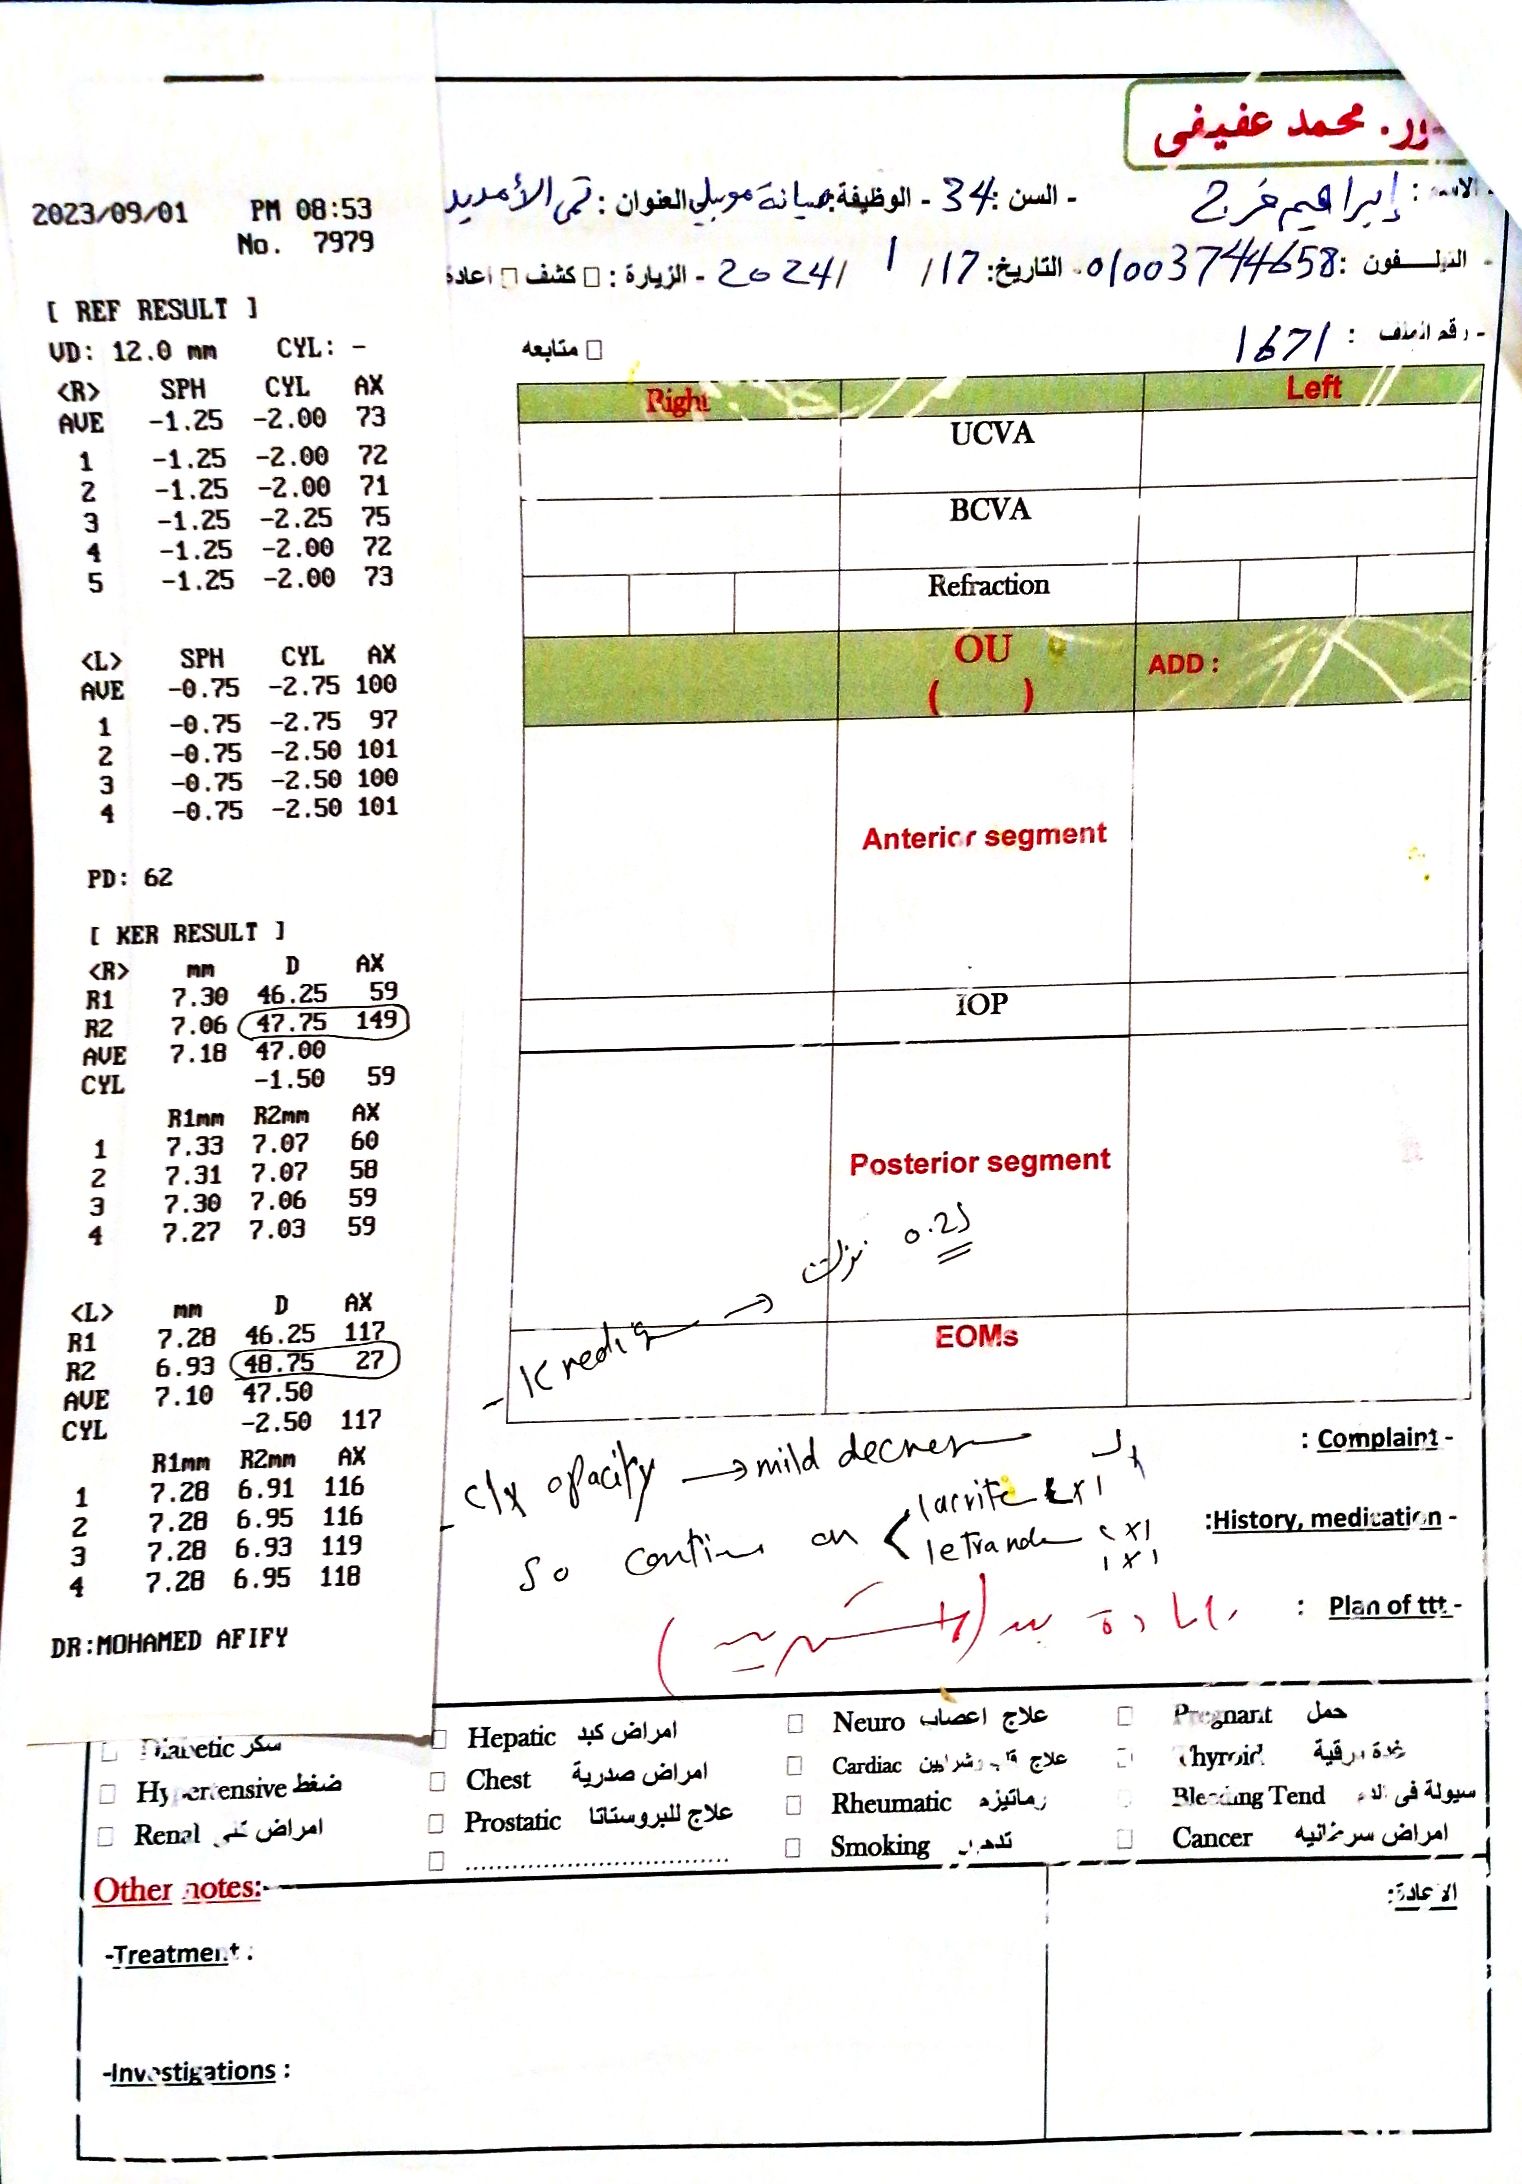 2023/09/01 PM 08:53
No. 7979
[ REF RESULT ]
VD: 12.0 mm CYL: -
<R> SPH CYL AX
AVE -1.25 -2.00 73
1 -1.25 -2.00 72
2 -1.25 -2.00 71
3 -1.25 -2.25 75
4 -1.25 -2.00 72
5 -1.25 -2.00 73
<L> SPH CYL AX
AVE -0.75 -2.75 100
1 -0.75 -2.75 97
2 -0.75 -2.50 101
3 -0.75 -2.50 100
4 -0.75 -2.50 101
PD: 62
[ KER RESULT ]
<R> mm D AX
R1 7.30 46.25 59
R2 7.06 47.75 149
AVE 7.18 47.00
CYL -1.50 59
R1mm R2mm AX
1 7.33 7.07 60
2 7.31 7.07 58
3 7.30 7.06 59
4 7.27 7.03 59
<L> mm D AX
R1 7.28 46.25 117
R2 6.93 48.75 27
AVE 7.10 47.50
CYL -2.50 117
R1mm R2mm AX
1 7.28 6.91 116
2 7.28 6.95 116
3 7.28 6.93 119
4 7.28 6.95 118
DR:MOHAMED AFIFY
محمد عفيفى
- الاسم : إبراهيم فرج - السن : 34 - الوظيفة: صيانة موبيلي العنوان : تمى الأمديد
- التيلـفون : 01003744658 - التاريخ: 17 / 1 / 2024 - الزيارة : □ كشف □ اعادة
- رقم الملف : 1671 □ متابعه
Right Left
UCVA
BCVA
Refraction
OU ADD :
( )
Anterior segment
IOP
Posterior segment
نزلت 0.25
EOMs
Complaint - :
- c/x opacity → mild decrease
History, medication - :
So continue on
Plan of ttt - :
□ Diabetic سكر □ Hepatic امراض كبد □ Neuro علاج اعصاب □ Pregnant حمل
□ Hypertensive ضغط □ Chest امراض صدرية □ Cardiac علاج قلب وشرايين □ Thyroid غدة درقية
□ Renal امراض كلى □ Prostatic علاج للبروستاتا □ Rheumatic رماتيزم □ Bleeding Tend سيولة فى الدم
□ .................................. □ Smoking تدخين □ Cancer امراض سرطانيه
Other notes:-
الاعادة:
-Treatment :
-Investigations :